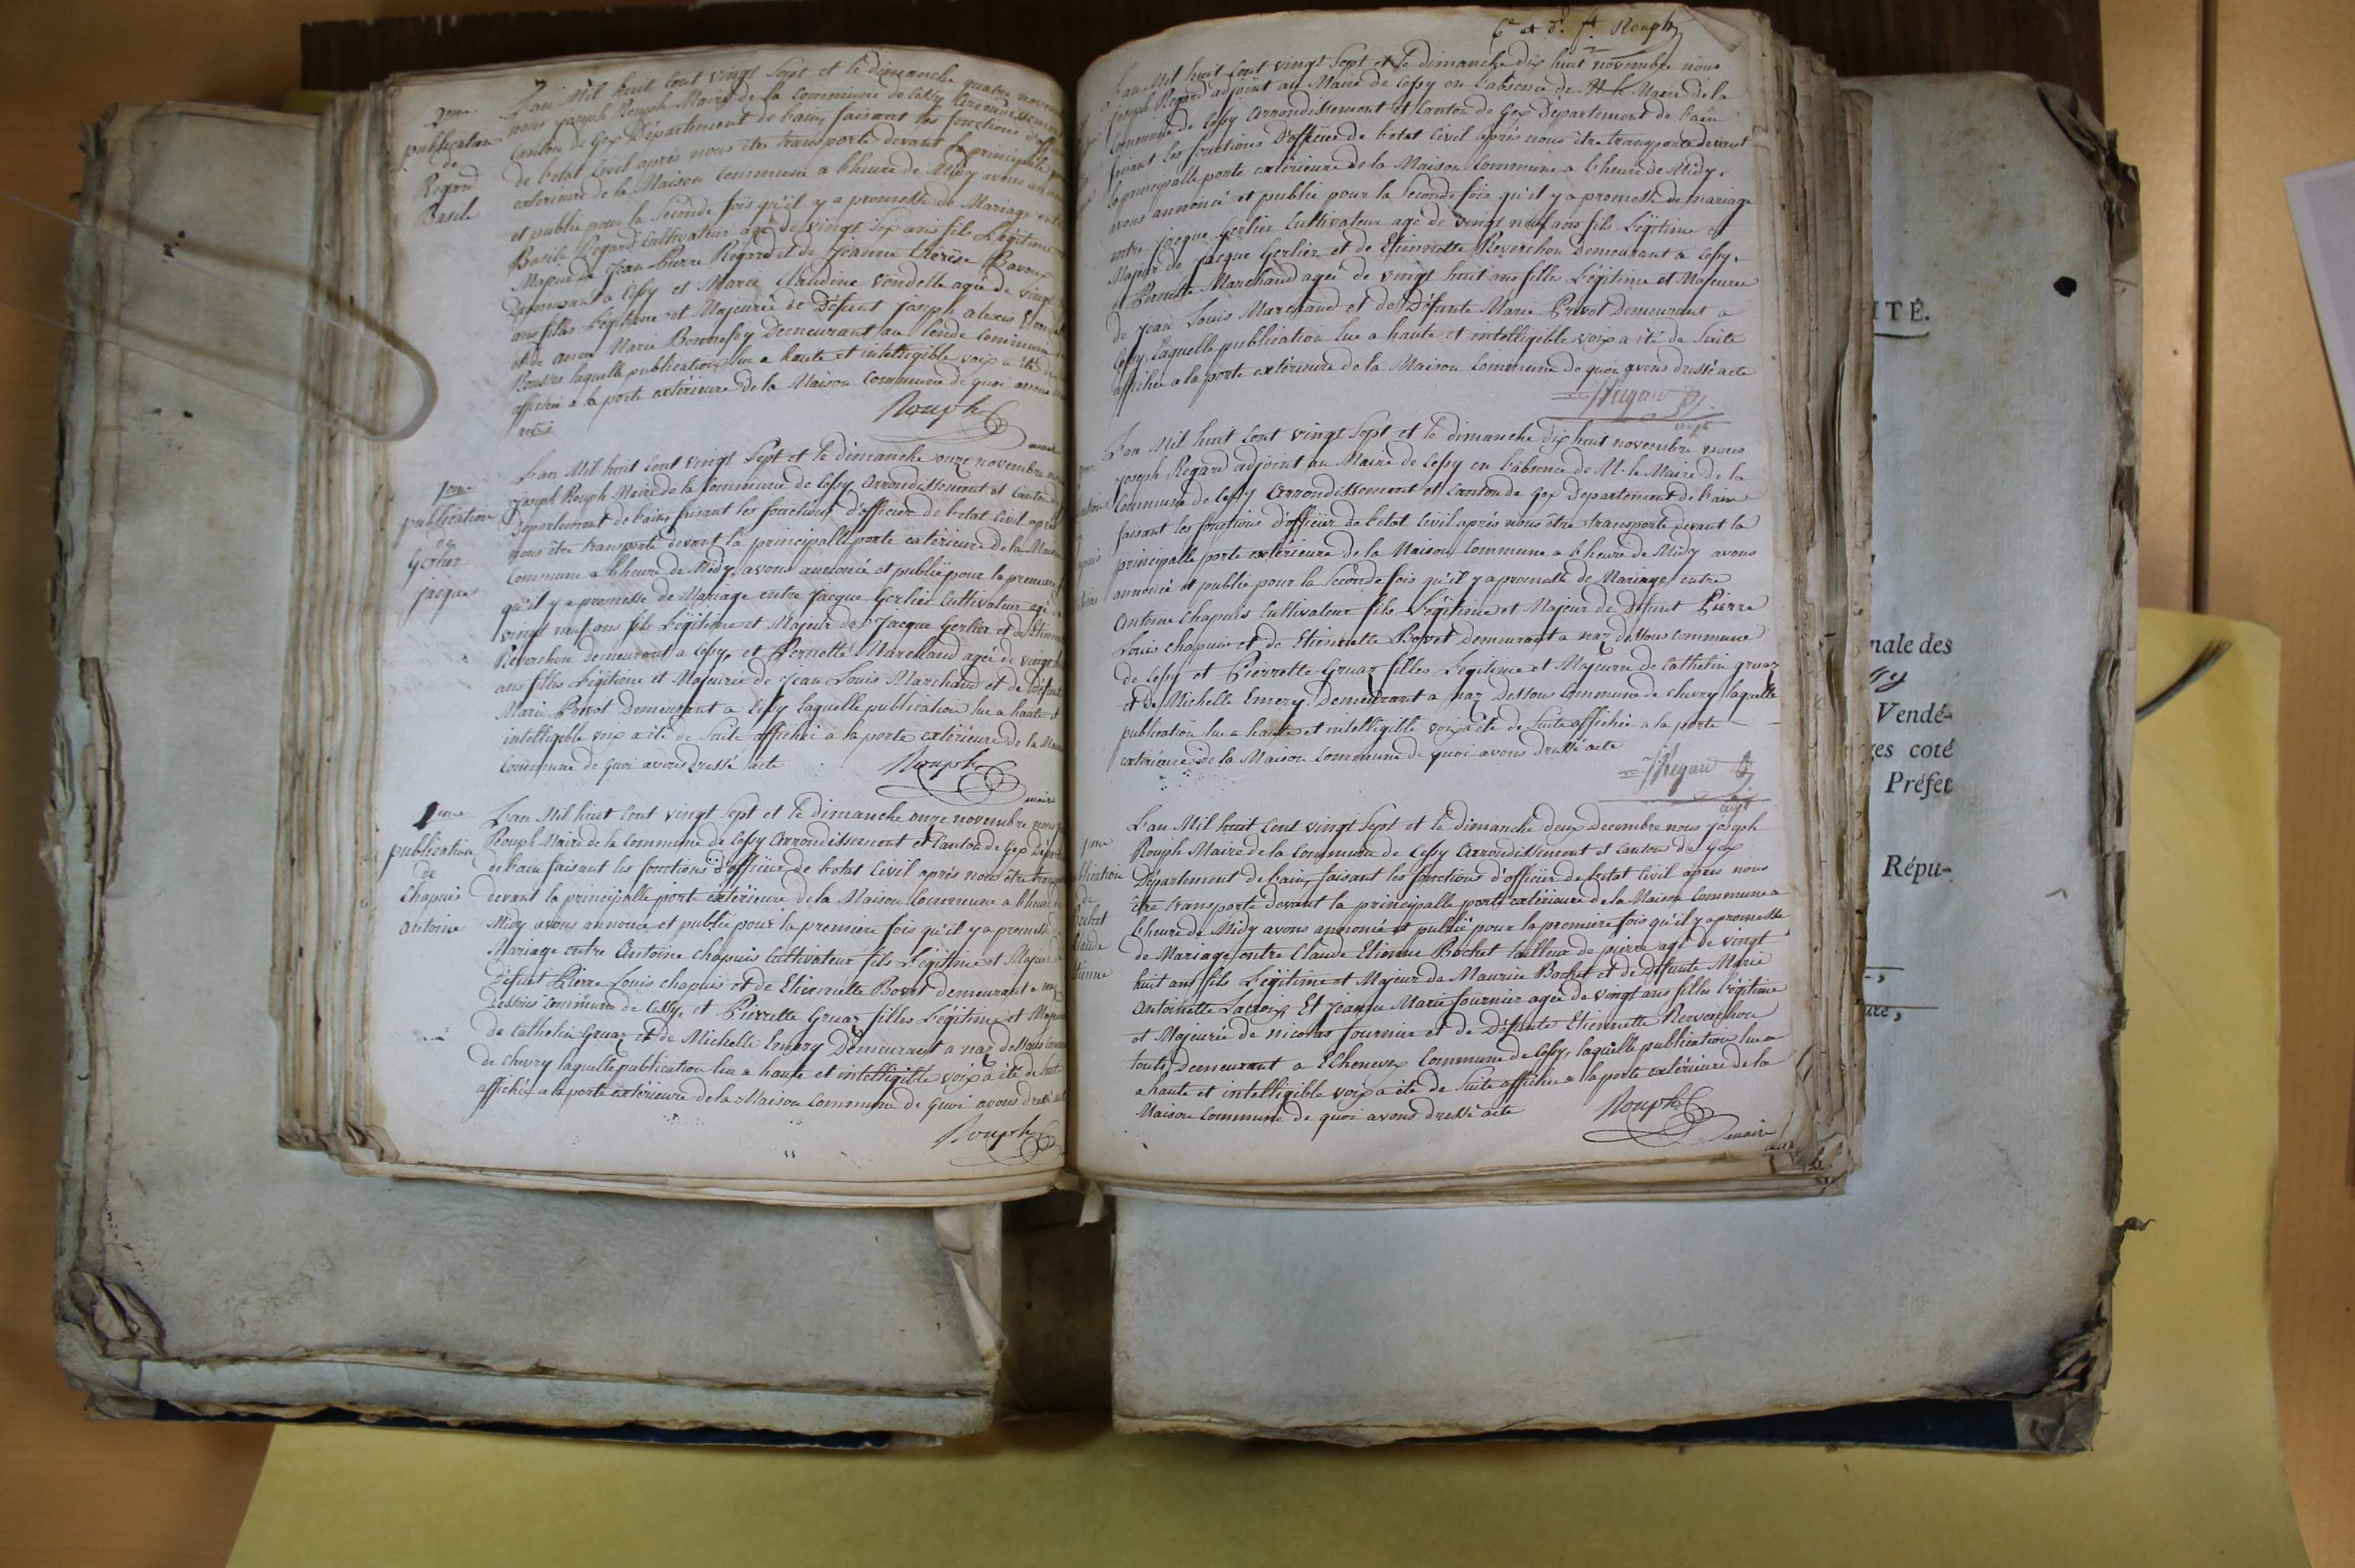 2eme
publication
de
Regard
Basile
L'an Mil huit Cent vingt Sept et le dimanche quatre novem
nous joseph Rouph Maire de la Commune de Cessy arrondissement
Canton de Gex Département de l'ain, faisant les fonctions d'offic
de l'etat Civil après nous être transporté devant la principalle p
exterieure de la Maison Commune a l'heure de Midy avons ann
et publié pour la Seconde fois qu'il y a promesse de Mariage entre
Basile Regard Cultivateur agé de vingt Six ans fils Légitime
Majeur de Jean Pierre Regard et de Jeanne thérèse Ravoux
Demeurant a Cessy et Marie Claudine Vendelle agée de vingt
ans filles Légitime et Majeurée de Défunt joseph alexis Vend
et de anne Marie Bonnefoy Demeurant au Commune de
Rousses laquelle publication lue a haute et intelligible voix a été de
affichée a la porte extérieure de la Maison Commune de quoi avons
acte
Rouph
maire
1eme
publication
de
Gerlier
jacque
L'an Mil huit Cent vingt Sept et le dimanche onze novembre no
joseph Rouph Maire de la Commune de Cessy arrondissement et Canton de
Département de l'ain, faisant les fonctions d'officier de l'etat Civil après
nous être transporté devant la principalle porte extérieure de la Maison
Commune a l'heure de Midy, avons annoncé et publié pour la premiere
qu'il y a promesse de Mariage entre jacque Gerlier Cultivateur agé
vingt neuf ans fils Légitime et Majeur de Jacque Gerlier et de Etien
Reverchon demeurant a Cessy, et Pernette Marchand agée de vingt
ans filles Légitime et Majeurée de Jean Louis Marchand et de Défun
Marie Privot Demeurant a Cessy laquelle publication lue a haute et
intelligible voix a été de Suite affichée a la porte extérieure de la Mais
Commune de quoi avons dressé acte
Rouph
maire
1eme
publication
de
Chapuis
antoine
L'an Mil huit Cent vingt Sept et le dimanche onze novembre nous
Rouph Maire de la Commune de Cessy arrondissement et Canton de Gex Dépar
de l'ain faisant les fonctions d'officier de l'etat Civil après nous être transp
devant la principalle porte extérieure de la Maison Commune a l'heure
Midy avons annoncé et publié pour la premiere fois qu'il y a promesse
Mariage entre Antoine Chapuis Cultivateur fils Légitime et Majeur
Défunt Pierre Louis chapuis et de Etiennette Bovet demeurant a naz
Dessous commune de Cessy, et Pierrette Gruaz filles Légitime et Majeur
de Cathelin Gruaz et de Michelle Emery Demeurant a naz Dessous Comm
de Chevry laquelle publication lue a haute et intelligible voix a été de Suite
affichée a la porte extérieure de la Maison Commune de quoi avons dressé acte
Rouph
6e et d. ft Rouph
L'an Mil huit Cent vingt Sept et le dimanche dix huit novembre nous
joseph Regard adjoint au Maire de Cessy en l'absence de M le Maire de la
Commune de Cessy arrondissement et Canton de Gex Département de l'ain
faisant les fonctions d'officier de l'etat Civil après nous être transporté devant
la principalle porte extérieure de la Maison Commune a l'heure de Midy,
avons annoncé et publié pour la Seconde fois qu'il y a promesse de mariage
entre jacque Gerlier Cultivateur agé de vingt neuf ans fils Légitime et
Majeur de Jacque Gerlier et de Etiennette Reverchon Demeurant a Cessy,
et Pernette Marchand agée de vingt huit ans fille Légitime et Majeurée
de jean Louis Marchand et de Défunte Marie Privot Demeurant a
Cessy laquelle publication lue a haute et intelligible voix a été de Suite
affichée a la porte extérieure de la Maison Commune de quoi avons dressé acte
JRegard
adjt
L'an Mil huit Cent vingt Sept et le dimanche dix huit novembre nous
joseph Regard adjoint au Maire de Cessy en l'absence de M. le Maire de la
Commune de Cessy arrondissement et Canton de Gex Département de l'ain
faisant les fonctions d'officier de l'etat Civil après nous être transporté devant la
principalle porte extérieure de la Maison Commune a l'heure de Midy avons
annoncé et publié pour la Seconde fois qu'il y a promesse de Mariage entre
Antoine Chapuis Cultivateur fils Légitime et Majeur de Défunt Pierre
Louis chapuis et de Etiennette Bovet Demeurant a naz dessous commune
de Cessy et Pierrette Gruaz filles Légitime et Majeurée de Cathelin gruaz
et de Michelle Emery Demeurant a naz Dessous Commune de Chevry laquelle
publication lue a haute et intelligible voix a été de Suite affichée a la porte
extérieure de la Maison Commune de quoi avons dressé acte
JRegard
adjt
1eme
blication
de
Bochet
laude
tienne
L'an Mil huit Cent vingt Sept et le dimanche deux decembre nous joseph
Rouph Maire de la Commune de Cessy arrondissement et Canton de Gex
Département de l'ain, faisant les fonctions d'officier de l'etat Civil après nous
être transporté devant la principalle porte extérieure de la Maison Commune a
l'heure de Midy avons annoncé et publié pour la premiere fois qu'il y a promesse
de Mariage entre Claude Etienne Bochet tailleur de pierre agé de vingt
huit ans fils Légitime et Majeur de Maurice Bochet et de Défunte Marie
Antoinette Lacroix Et Jeanne Marie fournier agée de vingt ans filles Légitime
et Majeurée de nicolas fournier et de Défunte Etiennette Reverchon
touts Demeurant a Echenevex Commune de Cessy, laquelle publication lue
a haute et intelligible voix a été de Suite affichée a la porte extérieure de la
Maison Commune de quoi avons dressé acte
Rouph
maire
ITÉ.
nale des
Vendé-
ges coté
Préfet
Répu-